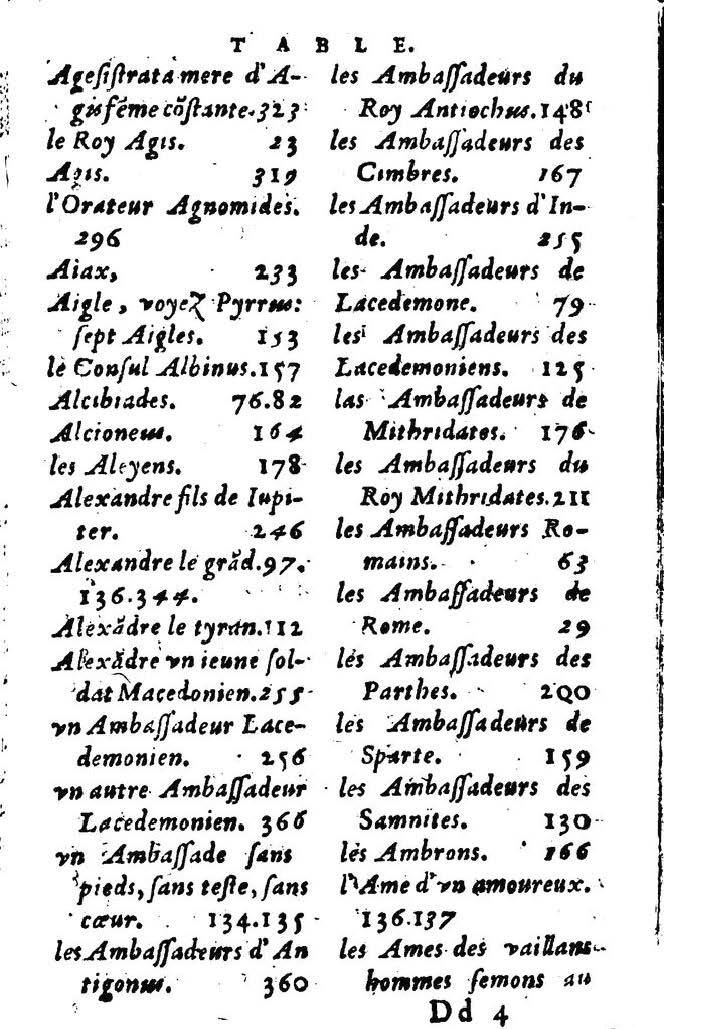 TABLE.
Agesiſtrata mere d'A-
gis féme cõſtante. 323
le Roy Agis. 23
Agis. 319
l'Orateur Agnomides.
296
Aiax, 233
Aigle, voyez Pyrrus:
ſept Aigles. 153
le Conſul Albinus. 157
Alcibiades. 76.82
Alcioneus. 164
les Aleyens. 178
Alexandre fils de Iupi-
ter. 246
Alexandre le grãd. 97.
136.344.
Alexãdre le tyran. 112
Alexãdre vn ieune ſol-
dat Macedonien. 255
vn Ambaſſadeur Lace-
demonien. 256
vn autre Ambaſſadeur
Lacedemonien. 366
vn Ambaſſade ſans
pieds, ſans teſte, ſans
cœur. 134.135
les Ambaſſadeurs d'An
tigonus. 360
les Ambaſſadeurs du
Roy Antiochus. 148
les Ambaſſadeurs des
Cimbres. 167
les Ambaſſadeurs d'In-
de. 255
les Ambaſſadeurs de
Lacedemone. 79
les Ambaſſadeurs des
Lacedemoniens. 125
las Ambaſſadeurs de
Mithridates. 176
les Ambaſſadeurs du
Roy Mithridates. 211
les Ambaſſadeurs Ro-
mains. 63
les Ambaſſadeurs de
Rome. 29
les Ambaſſadeurs des
Parthes. 200
les Ambaſſadeurs de
Sparte. 159
les Ambaſſadeurs des
Samnites. 130
les Ambrons. 166
l'Ame d'vn amoureux.
136.137
les Ames des vaillans
hommes ſemons au
Dd 4